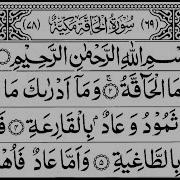 (٦٩) سُوْرَةُ الْحَآقَّةِ مَكِّيَّةٌ (٧٨)
بِسْمِ اللّٰهِ الرَّحْمٰنِ الرَّحِيْمِ
مَا الْحَآقَّةُ ۚ وَمَآ اَدْرٰىكَ مَا
ثَمُوْدُ وَعَادٌۢ بِالْقَارِعَةِ
بِالطَّاغِيَةِ وَاَمَّا عَادٌ فَاُهْ